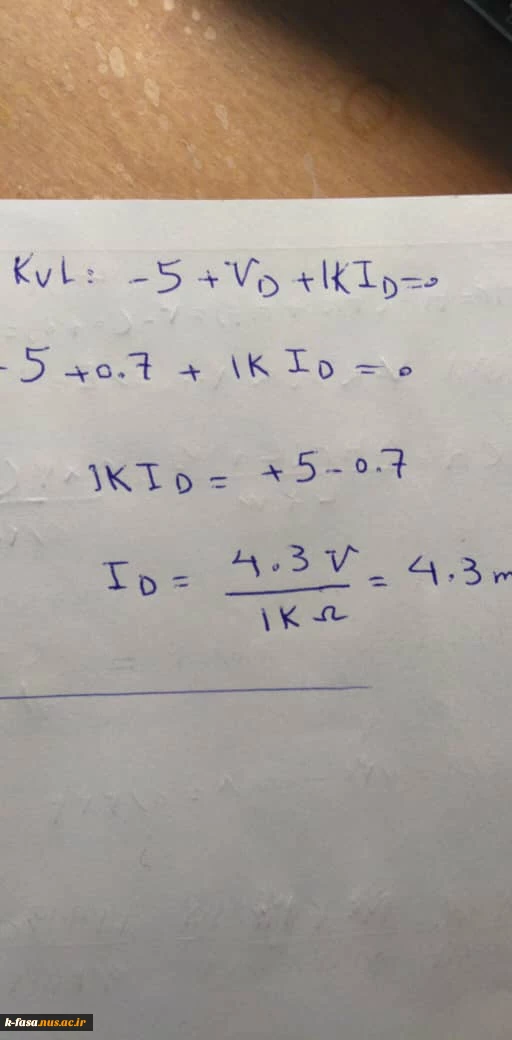 KVL: -5 + VD + 1K ID = 0
-5 + 0.7 + 1K ID = 0
1K ID = +5 - 0.7
ID = 4.3 V / 1K Ω = 4.3 m
k-fasa.nus.ac.ir